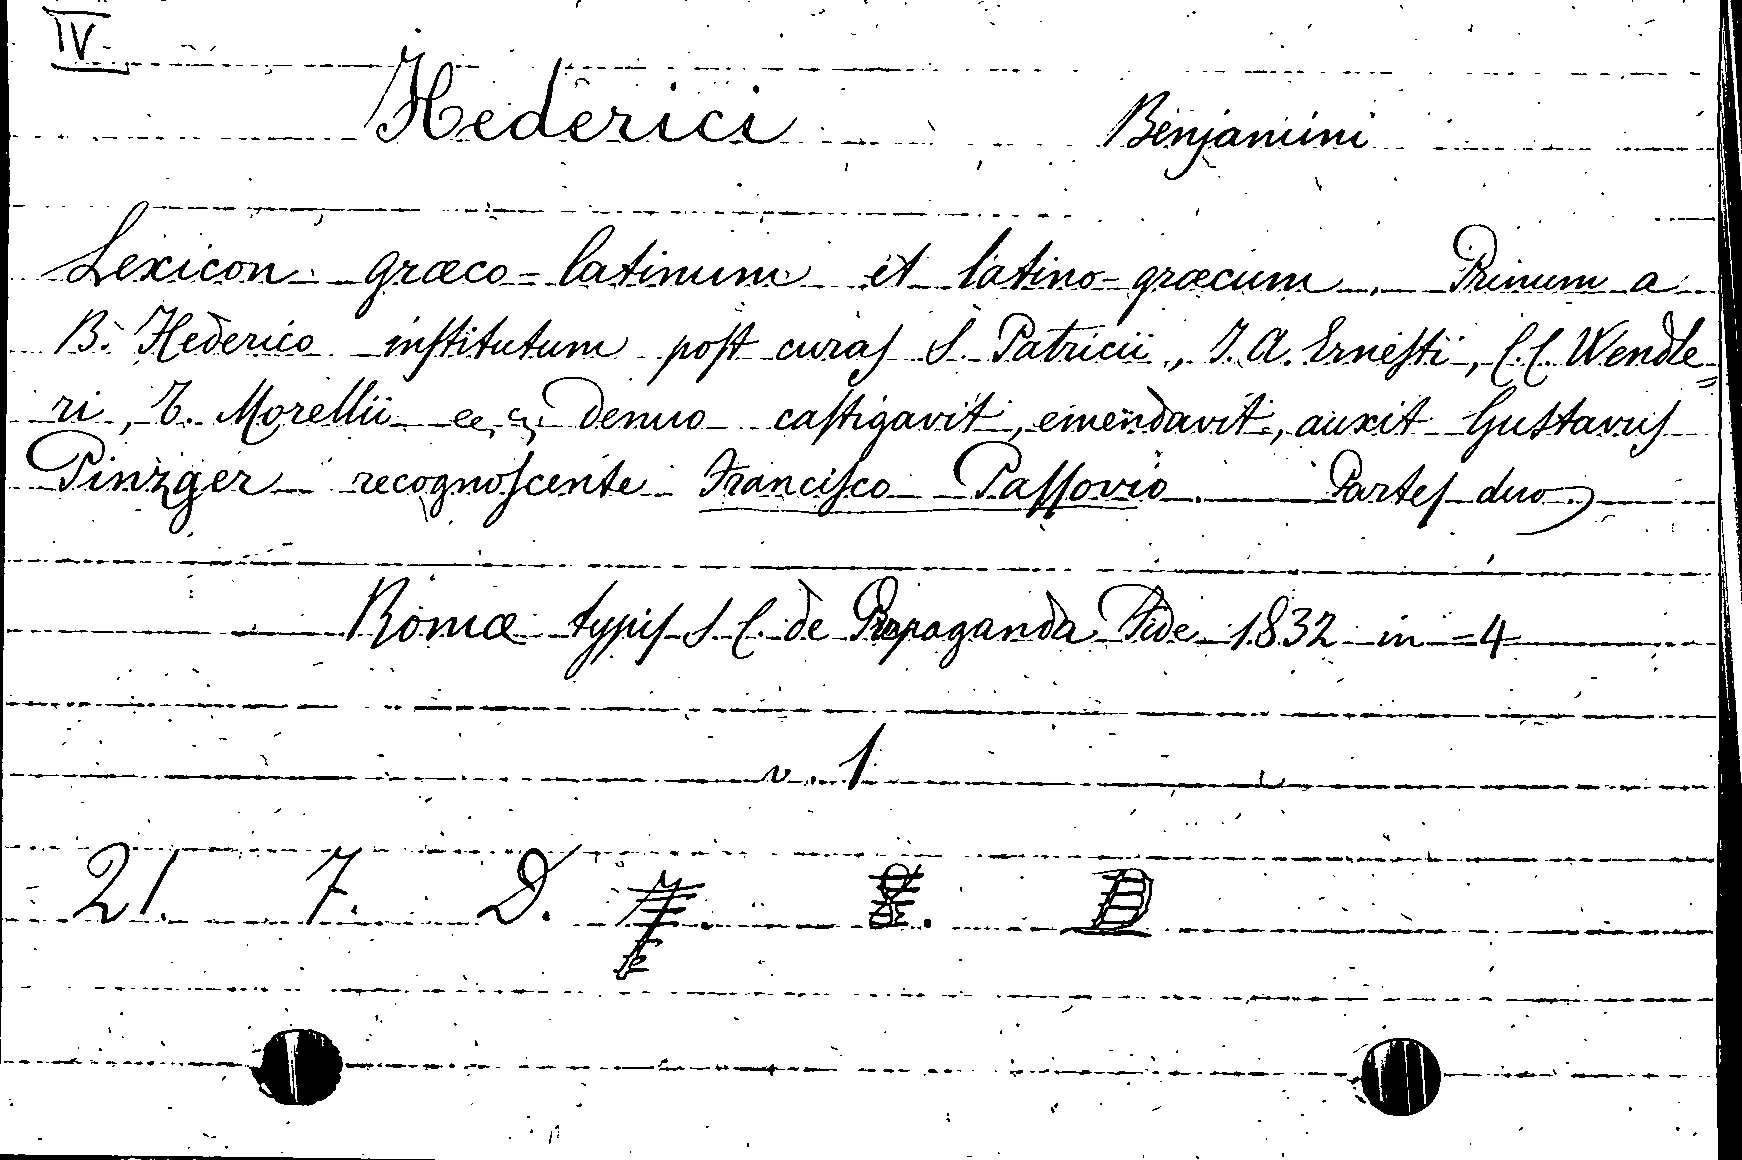 IV
Hederici Benjamini
Lexicon græco=latinum et latino-græcum. Primum a
B. Hederico institutum post curas S. Patricii, I. A. Ernesti, C. C. Wendle=
ri, T. Morellii denuo castigavit, emendavit, auxit Gustavus
Pinzger recognoscente Francisco Passovio. Partes duo
Romæ typis S. C. de Propaganda Fide 1832 in=4
v. 1
21. 7. D. 7. 8. D